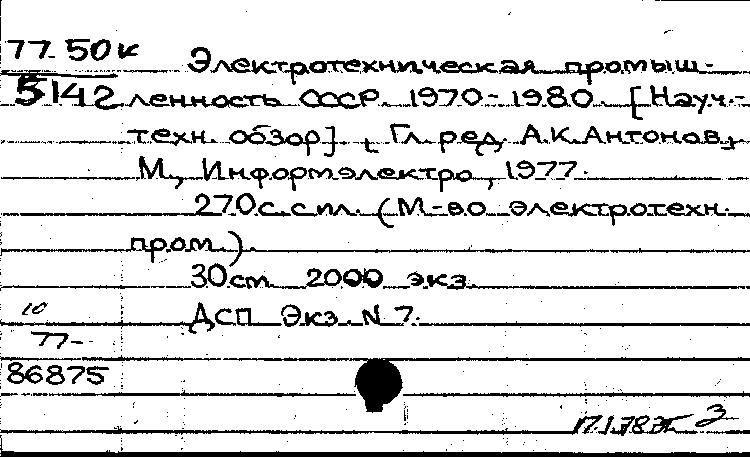 77-50к Электротехническая промыш-
5142 ленность СССР. 1970-1980. [Науч.-
техн. обзор]. Гл. ред. А.К. Антонов,
М., Информэлектро, 1977.
270с.сm. (М-во электротехн.
пром.).
30см 2000 экз.
ДСП Экз. N 7.
10
77-
86875
17.1.78 З